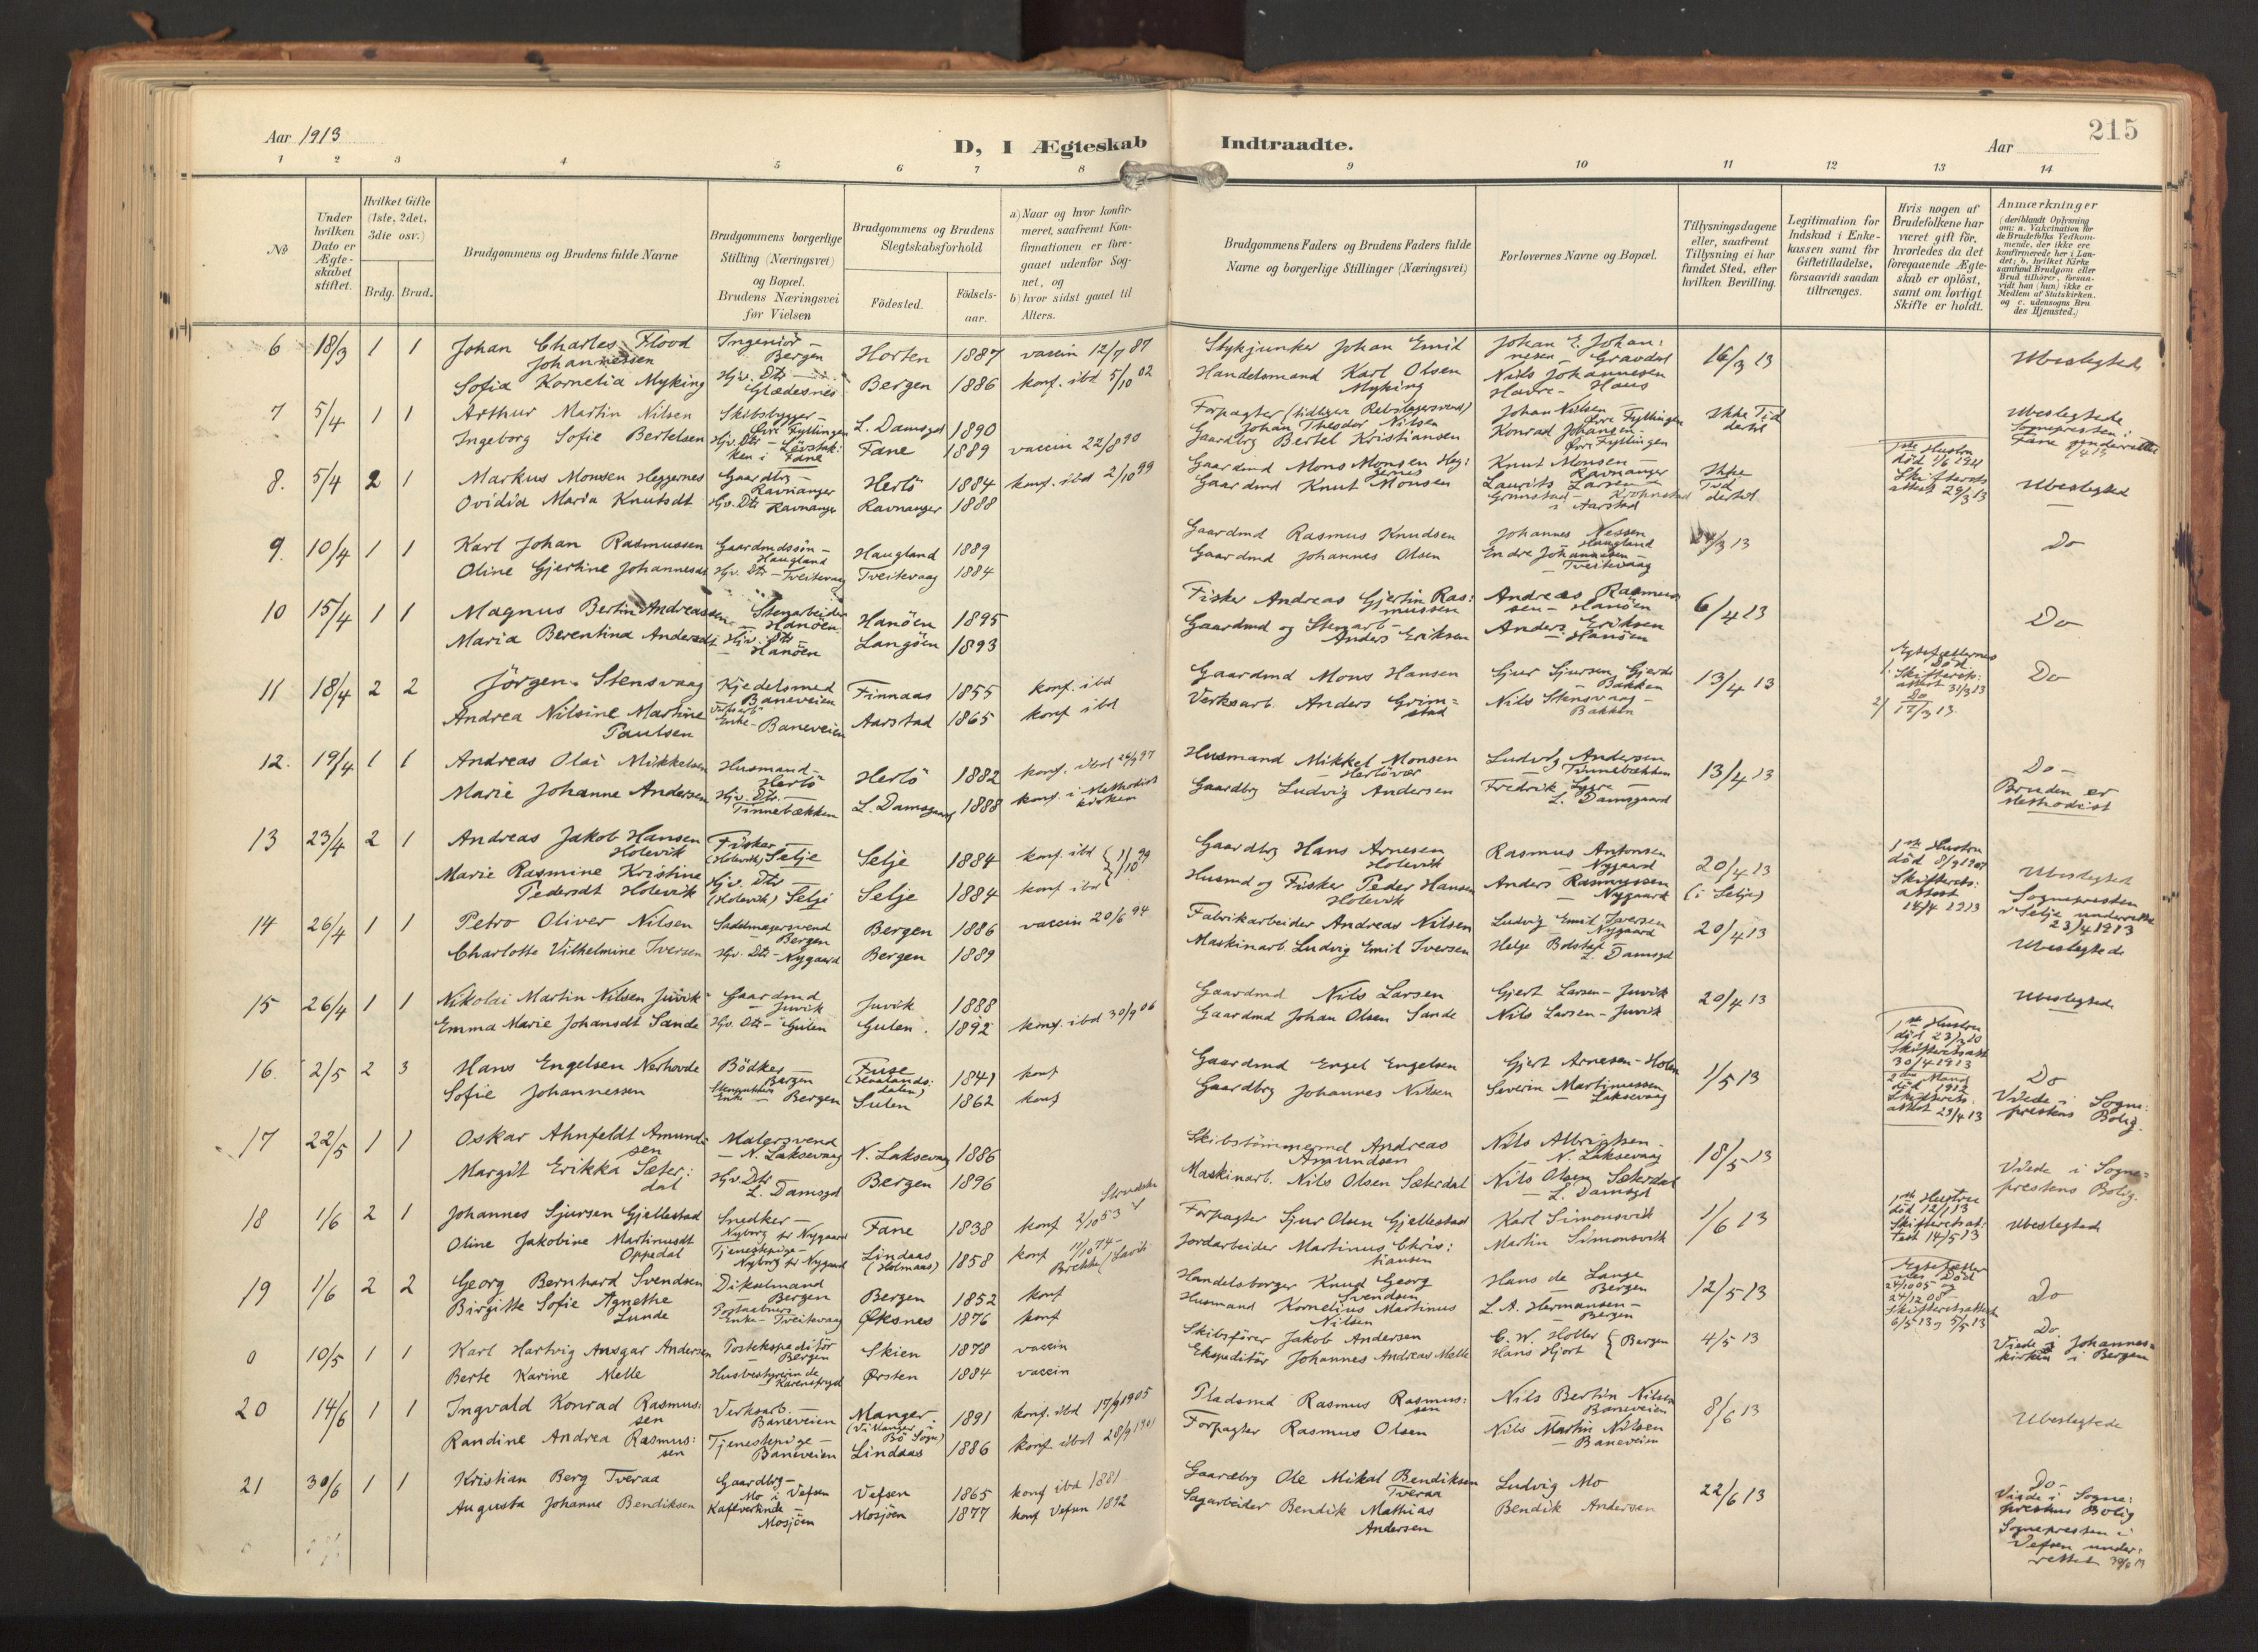 Aar 1913
D, I Ægteskab Indtraadte.
Aar
215
1 2 3 4 5 6 7 8 9 10 11 12 13 14
№
Under hvilken Dato er Ægteskabet stiftet.
Hvilket Gifte (1ste, 2det, 3die osv.)
Brdg. Brud.
Brudgommens og Brudens fulde Navne
Brudgommens borgerlige Stilling (Næringsvei) og Bopæl. Brudens Næringsvei før Vielsen
Brudgommens og Brudens Slegtskabsforhold
Fødested.
Fødselsaar.
a) Naar og hvor konfirmeret, saafremt Konfirmationen er foregaaet udenfor Sognet, og
b) hvor sidst gaaet til Alters.
Brudgommens Faders og Brudens Faders fulde Navne og borgerlige Stillinger (Næringsvei)
Forlovernes Navne og Bopæl.
Tillysningsdagene eller, saafremt Tillysning ei har fundet Sted, efter hvilken Bevilling.
Legitimation for Indskud i Enkekassen samt for Giftetilladelse, forsaavidt saadan tiltrænges.
Hvis nogen af Brudefolkene har været gift før, hvorledes da det foregaaende Ægteskab er opløst, samt om lovligt Skifte er holdt.
Anmærkninger
(deriblandt Oplysning om: a. Vakcination for de Brudefolks Vedkommende, der ikke ere konfirmerede her i Landet; b. hvilket Kirkesamfund Brudgom eller Brud tilhører, forsaavidt han (hun) ikke er Medlem af Statskirken, og c. udensogns Brudes Hjemsted.)
6 18/3 1 1 Johan Charles Flood Johannessen Ingeniør – Bergen Horten 1887 vaccin 12/7 87 Stykjunker Johan Emil Johan E. Johannesen – Gravdal 16/3 13 Ubeslegtede
Sofia Kornelia Myking Hjv. Dtr – Glædesnes Bergen 1886 konf. ibd 5/10 02 Handelsmand Karl Olsen Myking Nils Johannesen
7 5/4 1 1 Arthur Martin Nilsen Skibsbygger – Øvre Fyllingen L. Damsgd 1890 Forpagter (tidligere Rebslagersvend) Johan Theodor Nilsen Johan Nilsen – Øvre Fyllingen Ikke Tid dertil Ubeslegtede
Ingeborg Sofie Bertelsen Hjv. Dtr – i Fane Fane 1889 vaccin 22/8 90 Gaardbrg Bertel Kristiansen Konrad Johansen – Øvre Fyllingen Sognepresten i Fane underrettet
8. 5/4 2 1 Markus Monsen Heggernes Gaardbrg – Ravnanger Herlö 1884 konf. ibd 2/10 99 Gaardmd Mons Monsen Heggernes Knut Monsen – Ravnanger Ikke Tid dertil 1ste Hustru død 1/6 1911 Skifterets attest 29/3 13 Ubeslegted
Ovidia Maria Knutsdt Hjv. Dtr Ravnanger Ravnanger 1888 Gaardmd Knut Monsen Laurits Larsen – Grimstad – i Aarstad
9. 10/4 1 1 Karl Johan Rasmussen Gaardmdssøn – Haugland Haugland 1889 Gaardmd Rasmus Knudsen Johannes Nessen Haugland /3 13 Do
Oline Gjertine Johannesdt Hjv. Dtr – Tveitevaag Tveitevaag 1884 Gaardmd Johannes Olsen Endre Johannesen – Tveitevaag
10 15/4 1 1 Magnus Bertin Andreassen Stenarbeider – Hanöen Hanöen 1895 Fisker Andreas Gjertin Rasmussen Andreas Rasmussen – Hanöen 6/4 13 Do
Maria Berentina Andersdt Hjv. Dtr – Hanöen Langöen 1893 Gaardmd og Stenarb – Anders Eriksen Anders Eriksen – Hanöen
11 18/4 2 2 Jörgen Stensvaag Kjedelsmed Baneveien Finnaas 1855 konf. ibd Gaardmd Mons Hansen Sjur Sjursen Gjerde – Bakken 13/4 13 Egtefællernes Død 1. Skifterets: attest 31/3 13 Do
Andrea Nilsine Martine Paulsen Verksarb. Enke – Baneveien Aarstad 1865 konf ibd Verksarb. Anders Grimstad Nils Stensvaag – Bakken 2/ Do 17/3 13.
12. 19/4 1 1 Andreas Olai Mikkelsen Husmand – Herlö Herlö 1882 konf. ibd 97 Husmand Mikkel Monsen – Herlövær Ludvig Andersen – Tinnebækken 13/4 13 Do –
Marie Johanne Andersen Hjv. Dtr. – Tinnebækken L. Damsgaard 1888 konf. i Methodist kirken Gaardbrg Ludvig Andersen Fredrik Lygre – L. Damsgaard Bruden er Methodist
13 23/4 2 1 Andreas Jakob Hansen Holevik Fisker (Holevik) Selje Selje 1884 konf. ibd 1/10 99 Gaardbrg Hans Arnesen Holevik Rasmus Antonsen – Nygaard 20/4 13 1ste Hustru død 8/9 1907 Skifterets: attest 14/4 1913 Ubeslegted
Marie Rasmine Kristine Pedersdt Holevik Hjv. Dtr – (Holevik) Selje Selje 1884 konf ibd Husmd og Fisker Peder Hansen Holevik Anders Rasmussen – Nygaard (i Selje) Sognepresten i Selje underrettet 23/4 1913
14 26/4 1 1 Petro Oliver Nilsen Sadelmagersvend – Bergen Bergen 1886 vaccin 20/6 94 Fabrikarbeider Andreas Nilsen Ludvig Emil Iversen – Nygaard 20/4 13 Ubeslegtede
Charlotte Vilhelmine Iversen Hjv. Dtr – Nygaard Bergen 1889 Maskinarb. Ludvig Emil Iversen Helge Bolstad – L. Damsgd
15 26/4 1 1 Nikolai Martin Nilsen Juvik Gaardmd – Juvik Juvik 1888 Gaardmd Nils Larsen Gjert Larsen – Juvik 20/4 13 Ubeslegtede
Emma Marie Johansdt Sande Hjv. Dtr – Gulen Gulen. 1892 konf. ibd 30/9 06 Gaardmd Johan Olsen Sande Nils Larsen – Juvik
16. 2/5 2 3 Hans Engelsen Nerhovde Bödker – Bergen Fuse 1841 konf Gaardmd Engel Engelsen Gjert Arnesen – Holen 1/5 13 1ste Hustru død 23/ 10 Skifteretsatt 30/4 1913 Do
Sofie Johannessen Enke – Bergen Sulen 1862 konf Gaardbrg Johannes Nilsen Severin Martinussen – Laksevaag 2den Mand død 1912 Skifterets: attest 29/4 13 Viede i Sogneprestens Bolig.
17 22/5 1 1 Oskar Ahnfeldt Amundsen Malersvend – N. Laksevaag N. Laksevaag 1886 Skibstömmermd Andreas Amundsen Nils Albrigtsen – N. Laksevaag 18/5 13
Margit Erikka Sæterdal Hjv. Dtr L. Damsgd Bergen 1896 Maskinarb. Nils Olsen Sæterdal Nils Olsen Sæterdal – L. Damsgd Viede i Sogneprestens Bolig.
18 1/6 2 1 Johannes Sjursen Gjellestad Snedker – Nyborg pr Nygaard Fane 1838 konf 2/10 53 Forpagter Sjur Olsen Gjellestad Karl Simonsvik 1/6 13 1ste Hustru død 12/1 13 Skifteretsattest 14/5 13 Ubeslegtede
Oline Jakobine Martinusdt Oppedal Tjenestepige – Nyborg pr Nygaard Lindaas 1858 konf 11/10 74 – Brekke Jordarbeider Martinus Christiansen Martin Simonsvik
19 1/6 2 2 Georg Bernhard Svendsen Dikselmand Bergen Bergen 1852 konf Handelsborger Knud Georg Svendsen Hans de Lange – Bergen 12/5 13 Egtefællernes Død 24/10 05 og 24/12 08 – Skifteretsattest 6/5 13 og 5/5 13 Do
Birgitte Sofie Agnethe Lunde Enke – Tveitevaag Øksnes 1876 konf Husmand Kornelius Martinus Nilsen L. A. Hermansen – Bergen
0 10/5 1 1 Karl Hartvig Ansgar Andersen Postekspeditör Bergen Skien 1878 vaccin Skibsförer Jakob Andersen C. W. Holter 4/5 13 Do Viede i Johanneskirken i Bergen
Berte Karine Melle Husbestyrerinde Ørsten 1884 vaccin Ekspeditör Johannes Andreas Melle Hans Hjort } Bergen
20 14/6 1 1 Ingvald Konrad Rasmussen Verksarb. – Baneveien Manger 1891 konf. ibd 17/9 1905 Pladsmd Rasmus Rasmussen Nils Bertin Nilsen Baneveien 8/6 13 Ubeslegtede
Randine Andrea Rasmussen Tjenestepige – Baneveien Lindaas 1886 konf ibd 28/9 1901 Forpagter Rasmus Olsen Nils Martin Nilsen – Baneveien
21 30/6 1 1 Kristian Berg Tveraa Gaardbrg – Mo i Vefsen Vefsen 1865 konf ibd 1881 Gaardbrg Ole Mikal Bendiksen Tveraa Ludvig Mo 22/6 13 Do – Viede i Sogneprestens Bolig
Augusta Johanne Bendiksen Kafévertinde – Mosjöen Mosjöen 1877 konf Vefsen 1892 Sagarbeider Bendik Mathias Andersen Bendik Andersen Sognepresten i Vefsen underrettet 30/6 13